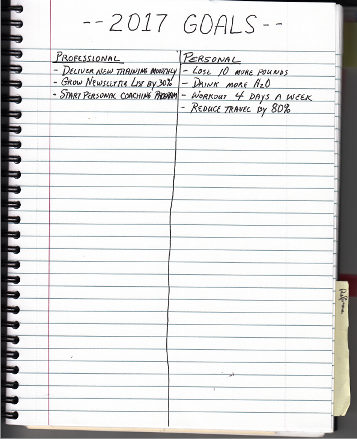 --2017 GOALS--
PROFESSIONAL
- DELIVER NEW TRAINING MONTHLY
- GROW NEWSLETTER LIST BY 30%
- START PERSONAL COACHING PROGRAM
PERSONAL
- LOSE 10 MORE POUNDS
- DRINK MORE H2O
- WORKOUT 4 DAYS A WEEK
- REDUCE TRAVEL BY 80%